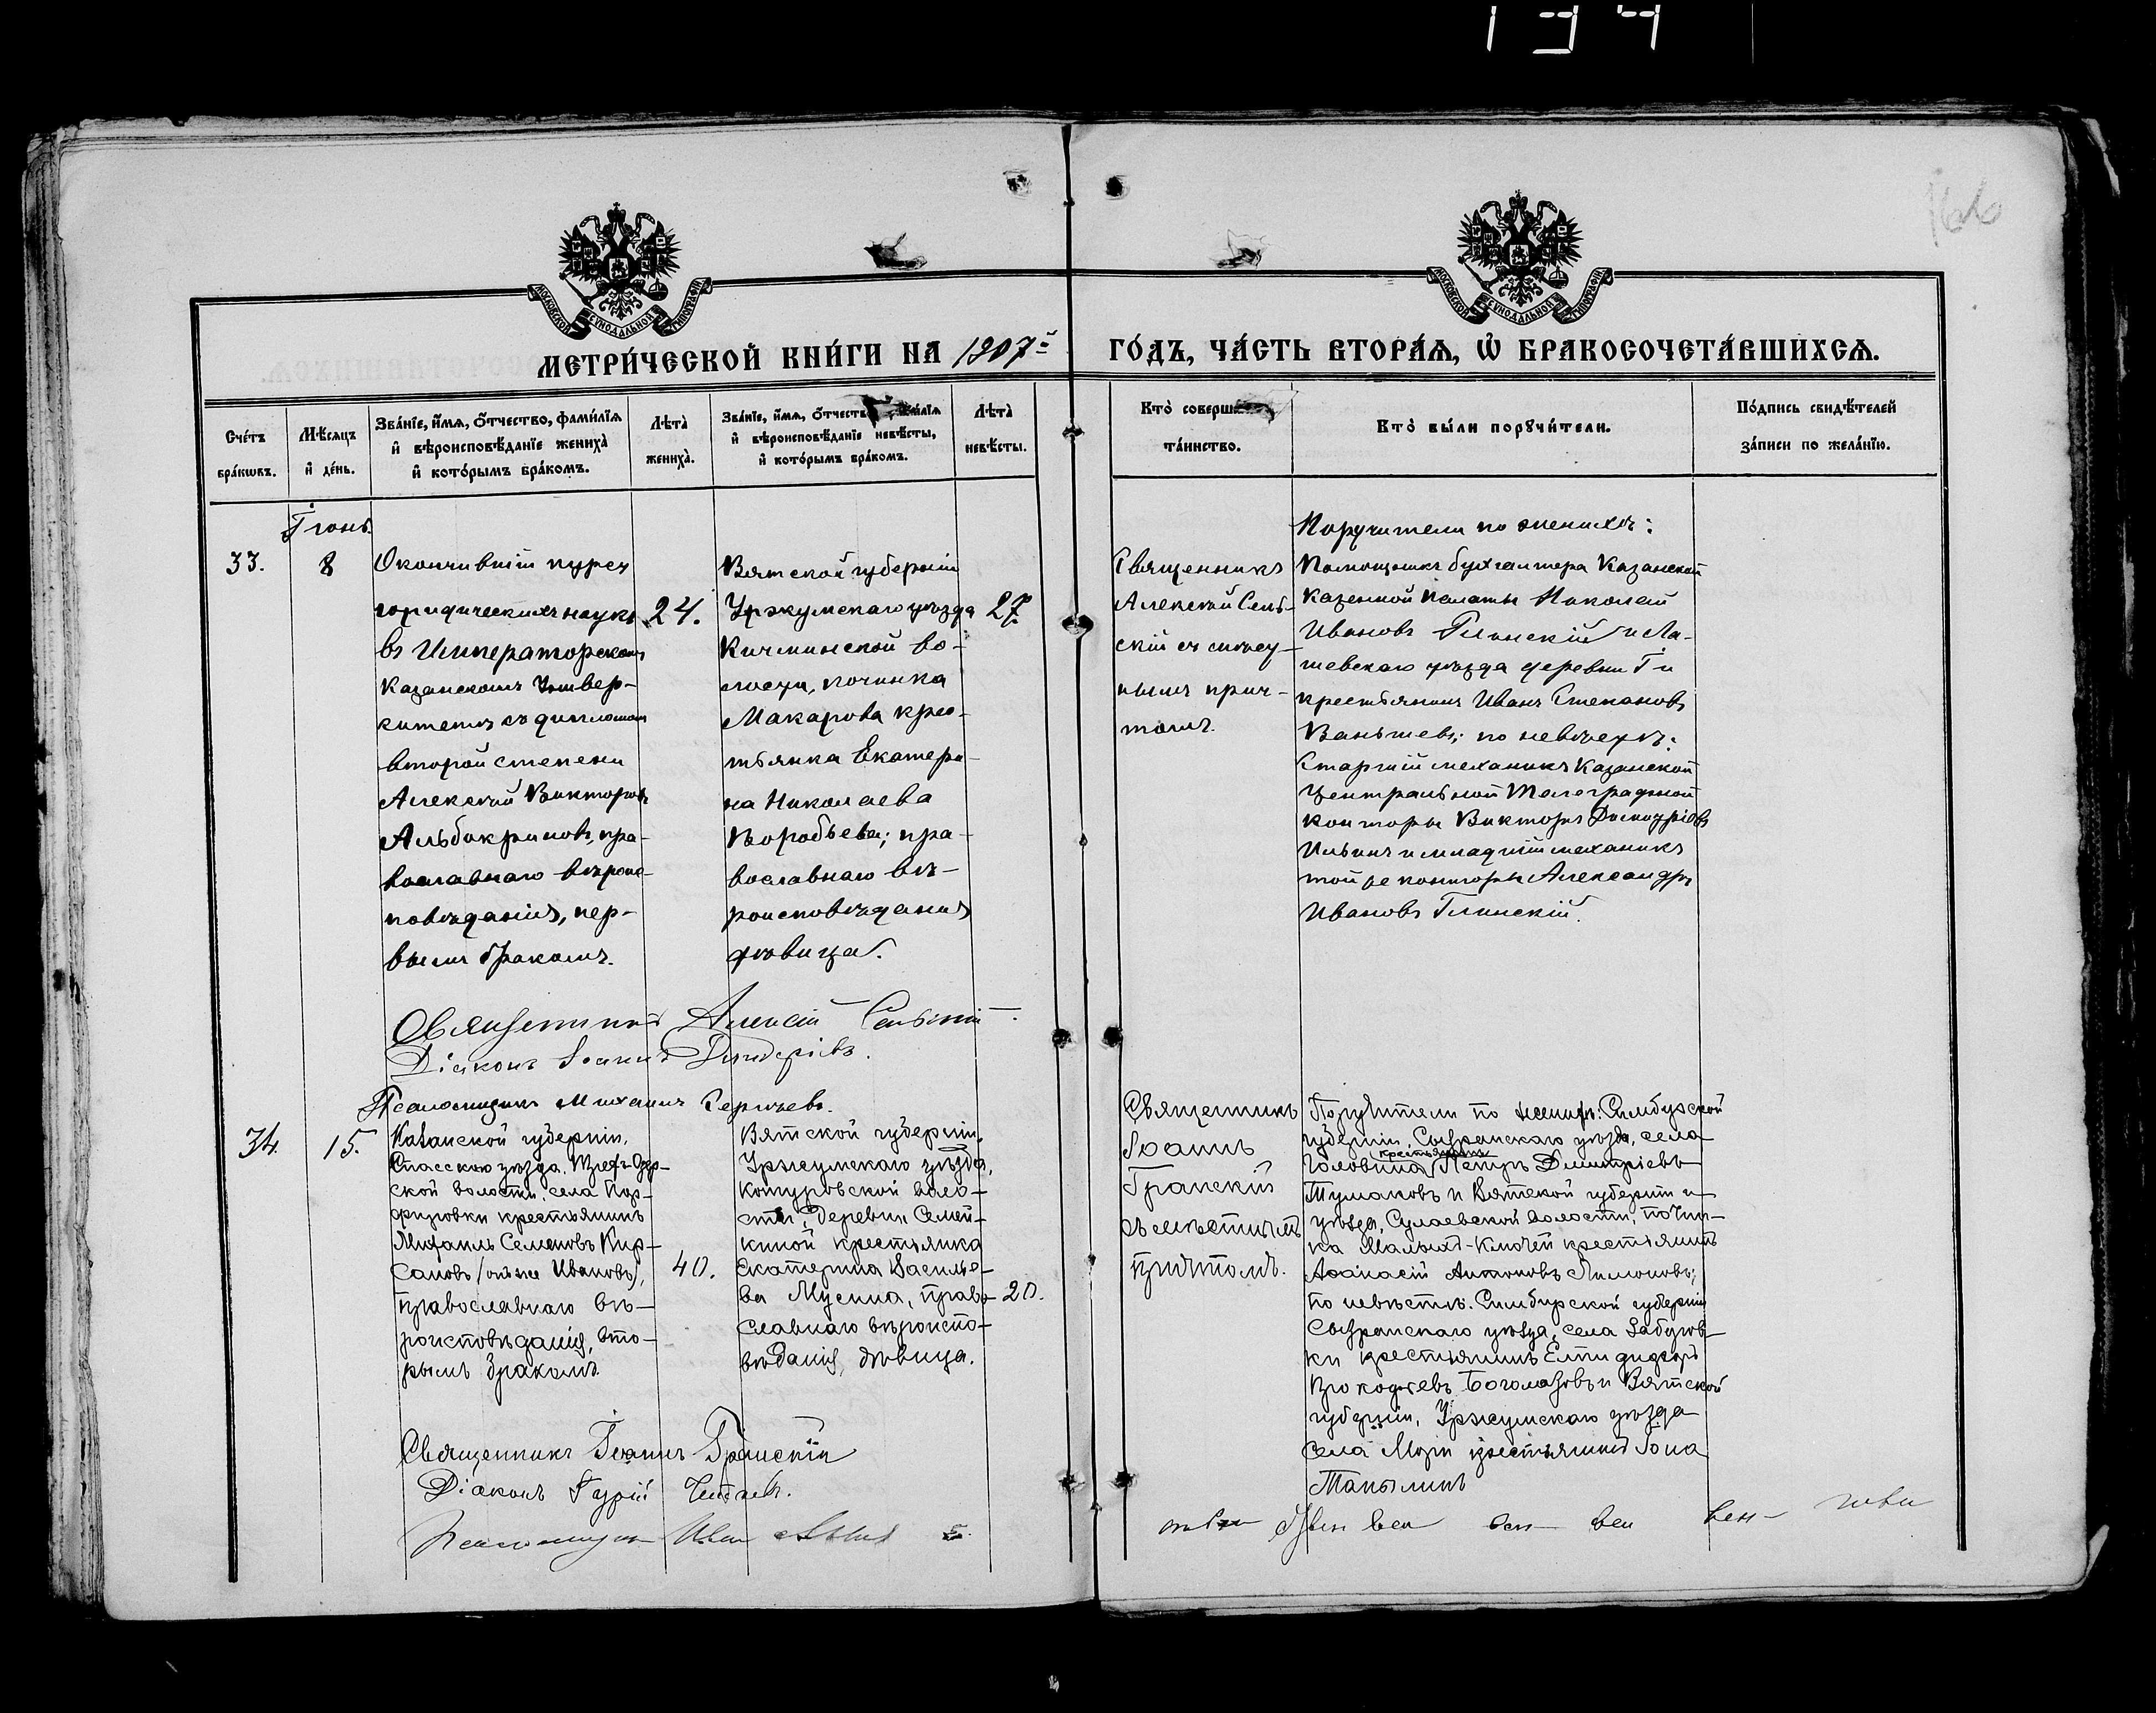 194
166
МЕТРИ́ЧЕСКОЙ КНИ́ГИ НА 1907й ГО́ДЪ, ЧА́СТЬ ВТОРА́Ѧ, Ѡ҆ БРАКОСОЧЕТА́ВШИХСѦ.
Сче́тъ бра́кѡвъ.
Мѣ́сѧцъ и҆ де́нь.
Зва́нїе, и҆́мѧ, ѻ҆́тчество, фами́лїѧ
и҆ вѣроисповѣ́данїе жениха̀
и҆ кото́рымъ бра́комъ.
Лѣта̀ жениха̀.
Зва́нїе, и҆́мѧ, ѻ҆́тчество, фами́лїѧ
и҆ вѣроисповѣ́данїе невѣ́сты,
и҆ кото́рымъ бра́комъ.
Лѣта̀ невѣ́сты.
Кто̀ соверша́лъ та́инство.
Кто̀ бы́ли порꙋчи́тели.
По́дпись свидѣ́телей
за́писи по жела́нїю.
Іюнь.
33.
8
Окончившій курсъ
юридическихъ наукъ
въ Императорскомъ
Казанскомъ Универ-
ситетѣ съ дипломомъ
второй степени
Алексѣй Викторовъ
Альбокриновъ, пра-
вославнаго вѣроис-
повѣданія, пер-
вымъ бракомъ.
24.
Вятской губерніи
Уржумскаго уѣзда
Кичминской во-
лости, починка
Макарова крес-
тьянка Екатери-
на Николаева
Воробьева; пра-
вославнаго вѣ-
роисповѣданія
дѣвица.
27.
Священникъ
Алексѣй Сель-
скій съ мѣст-
нымъ прич-
томъ.
Поручители по женихѣ:
Помощникъ бухгалтера Казанской
Казенной Палаты Николай
Ивановъ Глинскій и Ла-
ишевскаго уѣзда деревни
крестьянинъ Иванъ Степановъ
Ваньшевъ; по невѣстѣ:
Старшій механикъ Казанской
Центральной Телеграфной
конторы Викторъ Димитріевъ
Ильинъ и младшій механикъ
той же конторы Александръ
Ивановъ Глинскій.
Священникъ Алексій Сельскій
Діаконъ Іоаннъ
Псаломщикъ Михаилъ Сергѣевъ.
34.
15.
Казанской губерніи,
Спасскаго уѣзда,
ской волости, села Пор-
фировки крестьянинъ
Михаилъ Семеновъ Кир-
сановъ (онъ же Ивановъ),
православнаго вѣ-
роисповѣданія, вто-
рымъ бракомъ.
40.
Вятской губерніи,
Уржумскаго уѣзда,
Контуровской воло-
сти, деревни Семей-
киной крестьянка
Екатерина Василье-
ва Мусина, право-
славнаго вѣроиспо-
вѣданія, дѣвица.
20.
Священникъ
Іоаннъ
Гранскій
съ мѣстнымъ
причтомъ.
Поручители по женихѣ: Симбирской
губерніи, Сызранскаго уѣзда, села
Головина крестьянинъ Петръ Димитріевъ
Тумаковъ и Вятской губерніи и
уѣзда, Сулаевской волости, почин-
ка Малыхъ-Ключей крестьянинъ
Аѳанасій Антоновъ Лимоновъ;
по невѣстѣ: Симбирской губерніи
Сызранскаго уѣзда, села
ки крестьянинъ Елпидифоръ
Прокофьевъ Богомазовъ и Вятской
губерніи, Уржумскаго уѣзда
села крестьянинъ Іона
Священникъ Іоаннъ Гранскій
Діаконъ Гурій
Псаломщикъ Иван